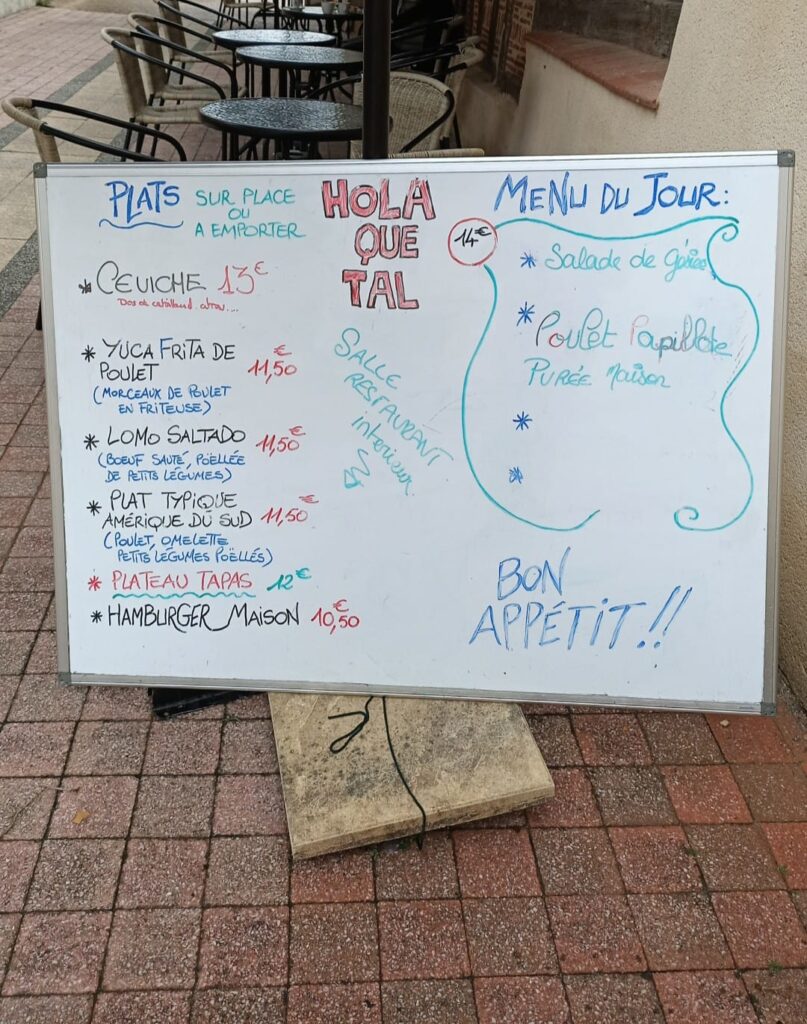 PLATS SUR PLACE
OU
A EMPORTER
* CEVICHE 13€
Dos de cabillaud, citron...
* YUCA FRITA DE
POULET 11,50€
(MORCEAUX DE POULET
EN FRITEUSE)
* LOMO SALTADO 11,50€
(BOEUF SAUTÉ, POËLLÉE
DE PETITS LÉGUMES)
* PLAT TYPIQUE
AMÉRIQUE DU SUD 11,50€
(POULET, OMELETTE
PETITS LÉGUMES POËLLÉS)
* PLATEAU TAPAS 12€
* HAMBURGER MAISON 10,50€
HOLA
QUE
TAL
SALLE
RESTAURANT
interieur
MENU DU JOUR:
14€
* Salade de
* Poulet Papillote
PURÉE Maison
*
*
BON
APPÉTIT.!!